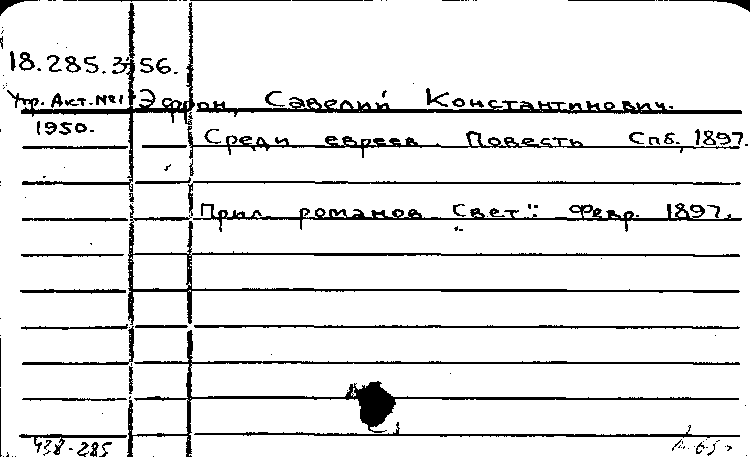 18.285.3.56.
Утр. Акт. №1 Эфрон, Савелий Константинович.
1950.
Среди евреев. Повесть Спб., 1897.
Прил. романов "Свет": Февр. 1897.
438-285